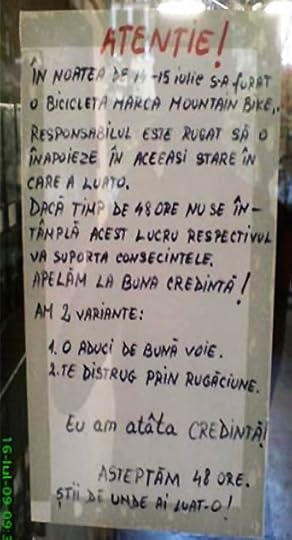 ATENTIE!
ÎN NOATEA DE 14-15 iulie S-A FURAT
O BICICLETA MARCA MOUNTAIN BIKE.
RESPONSABILUL ESTE RUGAT SĂ O
ÎNAPOIEZE ÎN ACEEASI STARE ÎN
CARE A LUATO.
DACĂ TIMP DE 48 ORE NU SE ÎN-
TÂMPLĂ ACEST LUCRU RESPECTIVUL
VA SUPORTA CONSECINTELE.
APELĂM LA BUNA CREDINTĂ!
AM 2 VARIANTE:
1. O ADUCI DE BUNĂ VOIE.
2. TE DISTRUG PRIN RUGĂCIUNE.
Eu am atâta CREDINTĂ!
ASTEPTĂM 48 ORE.
ȘTII DE UNDE AI LUAT-O!
16-Iul-09 09:3